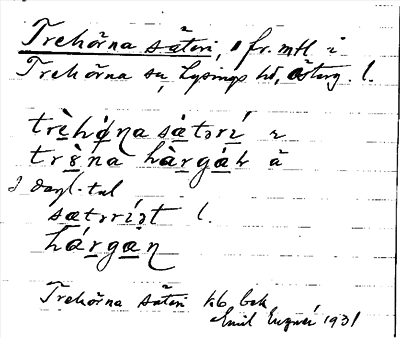 Trehörna säteri, fr. mtl i
Trehörna sn, Lysings hd, Österg. l.
trèhǫ́ṇa sätəri 2
trè̤na hàrgá̤r ä
i dagl. tal
sätərí̤ət l.
hárgạṇ
Trehörna säteri kb bok
Emil 1931